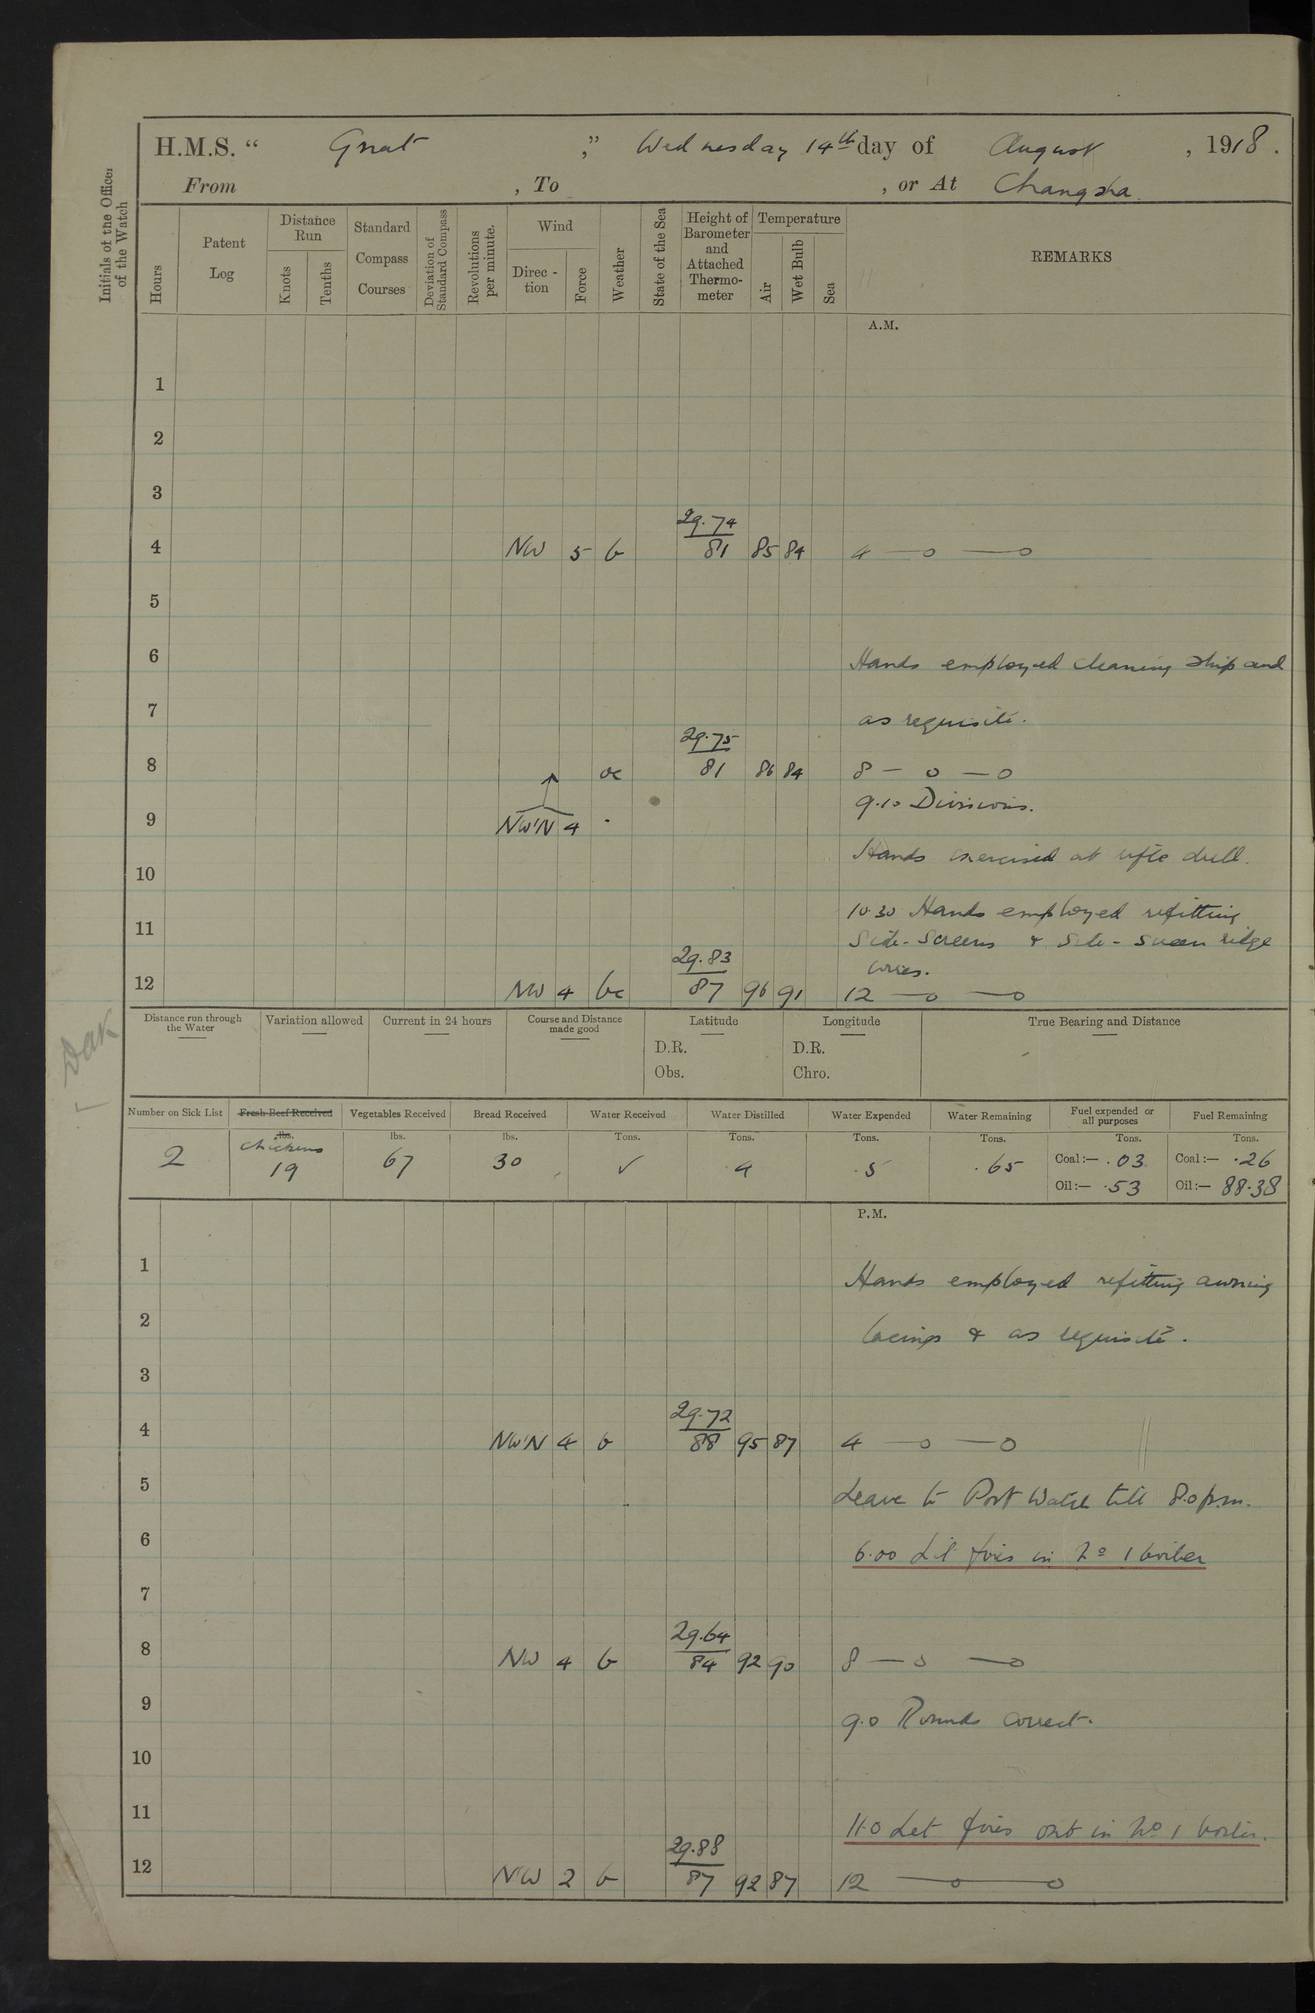 H.M.S. “ Gnat ,” Wednesday 14th day of August , 1918.
From , To , or At Changsha.
Initials of the Officer of the Watch
Hours Patent Log Distance Run Knots Tenths Standard Compass Courses Deviation of Standard Compass Revolutions per minute. Wind Direc-tion Force Weather State of the Sea Height of Barometer and Attached Thermo-meter Temperature Air Wet Bulb Sea REMARKS
A.M.
1
2
3
29.74
4 NW 5 b 81 85 84 4 —o —o
5
6 Hands employed cleaning ship and
7 as requisite.
29.75
8 oc 81 86 84 8 — o — o
9.10 Divisions.
9 NW'N 4
Hands exercised at rifle drill.
10
10.30 Hands employed refitting
11 Side-Screens & Side-screen ridge
29.83 wires.
12 NW 4 bc 87 96 91 12 —o —o
Distance run through the Water Variation allowed Current in 24 hours Course and Distance made good Latitude Longitude True Bearing and Distance
D.R. D.R.
Obs. Chro.
Dak
Number on Sick List Fresh Beef Received Vegetables Received Bread Received Water Received Water Distilled Water Expended Water Remaining Fuel expended or all purposes Fuel Remaining
lbs. lbs. lbs. Tons. Tons. Tons. Tons. Tons. Tons.
chickens
2 19 67 30 ✓ 4 .5 .65 Coal:— .03 Coal:— .26
Oil:— .53 Oil:— 88.38
P.M.
1 Hands employed refitting awning
2 lacings & as requisite.
3
29.72
4 NW'N 4 b 88 95 87 4 —o —o
5 Leave to Port Watch till 8.0 p.m.
6 6.00 Lit fires in No 1 boiler
7
29.64
8 NW 4 b 84 92 90 8 —o —o
9 9.0 Rounds correct.
10
11 11.0 Let fires out in No 1 boiler.
29.88
12 NW 2 b 87 92 87 12 —o —o